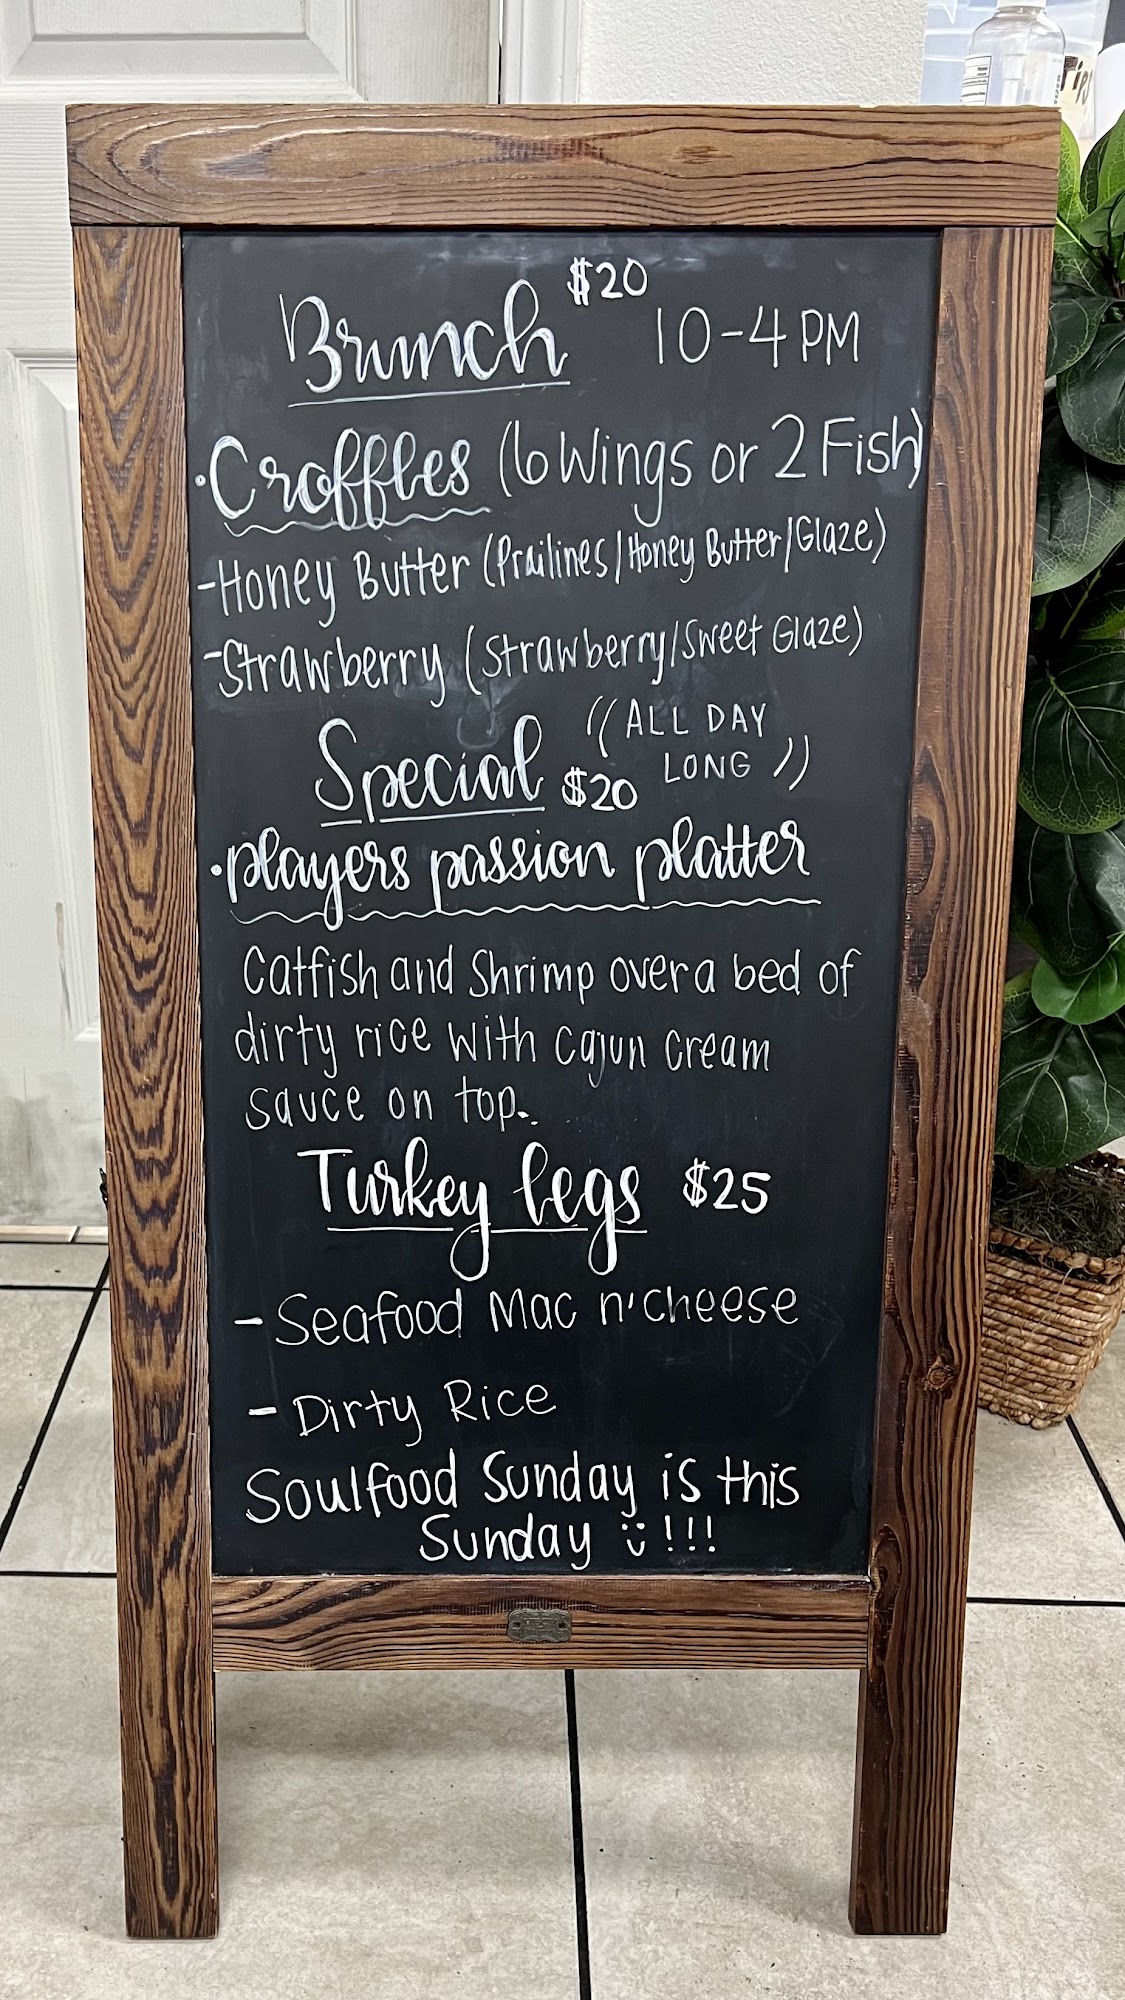 Brunch $20 10-4 PM
•Croffles (6 Wings or 2 Fish)
-Honey Butter (Prailines/Honey Butter/Glaze)
-Strawberry (Strawberry/Sweet Glaze)
Special $20 ((ALL DAY
LONG))
•players passion platter
Catfish and Shrimp over a bed of
dirty rice with cajun cream
sauce on top.
Turkey legs $25
- Seafood Mac n'cheese
- Dirty Rice
Soulfood Sunday is this
Sunday ü!!!